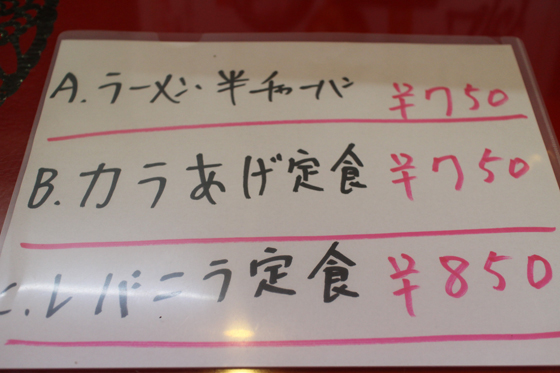 A.ラーメン・半チャーハン ¥750
B.カラあげ定食 ¥750
C.レバニラ定食 ¥850